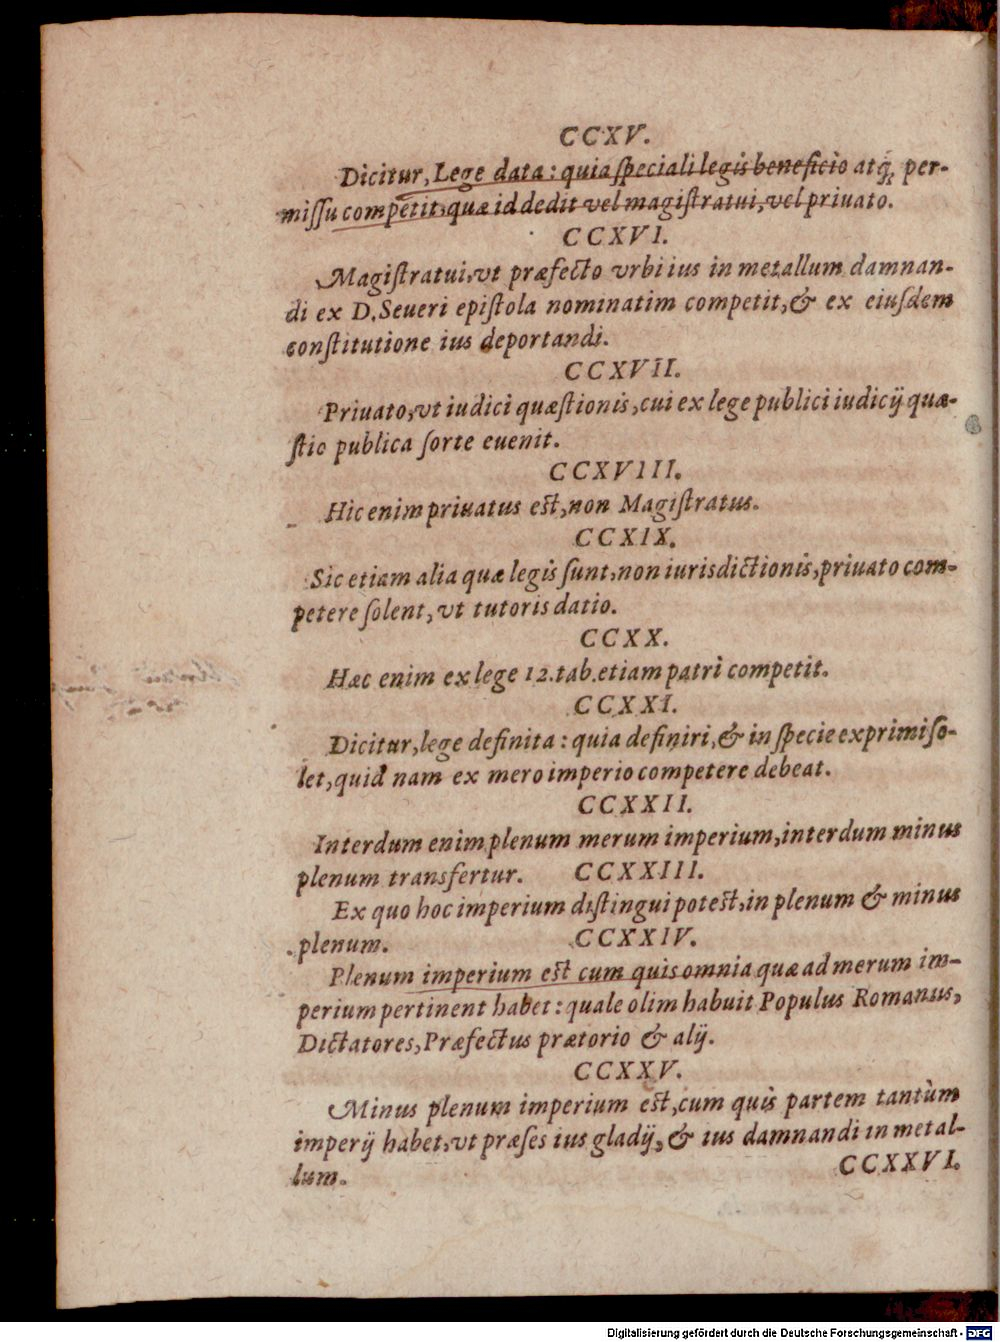 CCXV.
Dicitur, Lege data: quia speciali legis beneficio atq́; per-
missu competit, quæ id dedit vel magistratui, vel priuato.
CCXVI.
Magistratui, vt præfecto vrbi ius in metallum damnan-
di ex D. Seueri epistola nominatim competit, & ex eiusdem
constitutione ius deportandi.
CCXVII.
Priuato, vt iudici quæstionis, cui ex lege publici iudicij quæ-
stio publica sorte euenit.
CCXVIII.
Hic enim priuatus est, non Magistratus.
CCXIX.
Sic etiam alia quæ legis sunt, non iurisdictionis, priuato com-
petere solent, vt tutoris datio.
CCXX.
Hæc enim ex lege 12. tab. etiam patri competit.
CCXXI.
Dicitur, lege definita: quia definiri, & in specie exprimi so-
let, quid nam ex mero imperio competere debeat.
CCXXII.
Interdum enim plenum merum imperium, interdum minus
plenum transfertur. CCXXIII.
Ex quo hoc imperium distingui potest, in plenum & minus
plenum. CCXXIV.
Plenum imperium est cum quis omnia quæ ad merum im-
perium pertinent habet: quale olim habuit Populus Romanus,
Dictatores, Præfectus prætorio & alij.
CCXXV.
Minus plenum imperium est, cum quis partem tantùm
imperij habet, vt præses ius gladij, & ius damnandi in metal-
lum. CCXXVI.
Digitalisierung gefördert durch die Deutsche Forschungsgemeinschaft - DFG